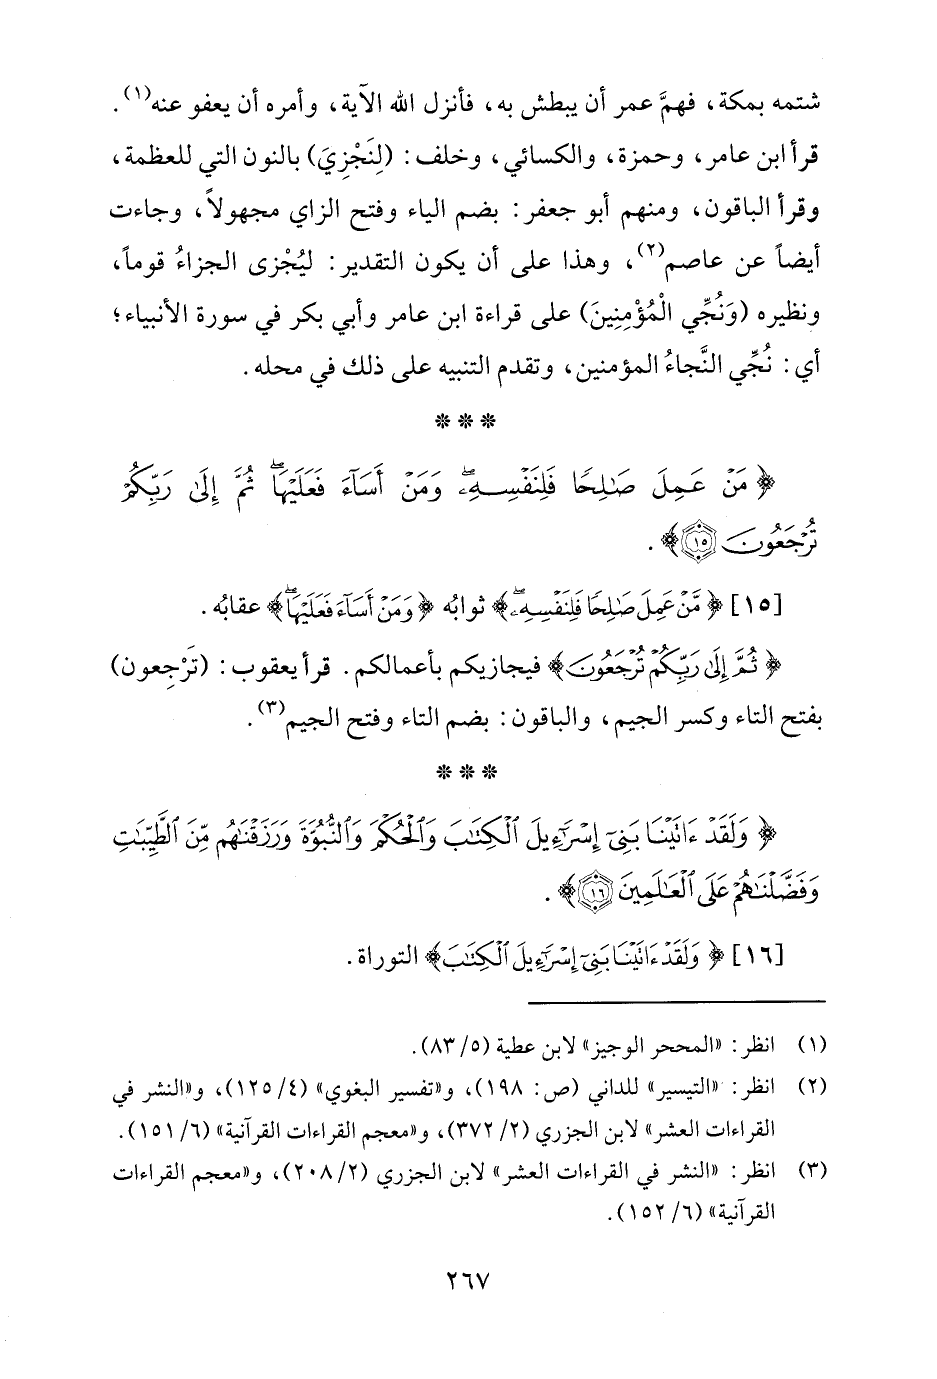 شتمه بمكة، فهمَّ عمر أن يبطش به، فأنزل الله الآية، وأمره أن يعفو عنه(١).
قرأ ابن عامر، وحمزة، والكسائي، وخلف: (لِنَجْزِيَ) بالنون التي للعظمة،
وقرأ الباقون، ومنهم أبو جعفر: بضم الياء وفتح الزاي مجهولاً، وجاءت
أيضاً عن عاصم(٢)، وهذا على أن يكون التقدير: ليُجْزى الجزاءُ قوماً،
ونظيره (وَنُجِّي الْمُؤْمِنِينَ) على قراءة ابن عامر وأبي بكر في سورة الأنبياء؛
أي: نُجِّي النَّجاءُ المؤمنين، وتقدم التنبيه على ذلك في محله.
* * *
﴿ مَنْ عَمِلَ صَٰلِحًا فَلِنَفْسِهِۦۖ وَمَنْ أَسَآءَ فَعَلَيْهَاۖ ثُمَّ إِلَىٰ رَبِّكُمْ
تُرْجَعُونَ ١٥﴾.
[١٥] ﴿ مَّنْ عَمِلَ صَٰلِحًا فَلِنَفْسِهِۦۖ﴾ ثوابُه ﴿وَمَنْ أَسَآءَ فَعَلَيْهَاۖ﴾ عقابُه.
﴿ ثُمَّ إِلَىٰ رَبِّكُمْ تُرْجَعُونَ﴾ فيجازيكم بأعمالكم. قرأ يعقوب: (تَرْجِعون)
بفتح التاء وكسر الجيم، والباقون: بضم التاء وفتح الجيم(٣).
* * *
﴿ وَلَقَدْ ءَاتَيْنَا بَنِىٓ إِسْرَٰٓءِيلَ ٱلْكِتَٰبَ وَٱلْحُكْمَ وَٱلنُّبُوَّةَ وَرَزَقْنَٰهُم مِّنَ ٱلطَّيِّبَٰتِ
وَفَضَّلْنَٰهُمْ عَلَى ٱلْعَٰلَمِينَ ١٦﴾.
[١٦] ﴿ وَلَقَدْ ءَاتَيْنَا بَنِىٓ إِسْرَٰٓءِيلَ ٱلْكِتَٰبَ﴾ التوراة.
(١) انظر: «المحرر الوجيز» لابن عطية (٥/ ٨٣).
(٢) انظر: «التيسير» للداني (ص: ١٩٨)، و«تفسير البغوي» (٤/ ١٢٥)، و«النشر في
القراءات العشر» لابن الجزري (٢/ ٣٧٢)، و«معجم القراءات القرآنية» (٦/ ١٥١).
(٣) انظر: «النشر في القراءات العشر» لابن الجزري (٢/ ٢٠٨)، و«معجم القراءات
القرآنية» (٦/ ١٥٢).
٢٦٧